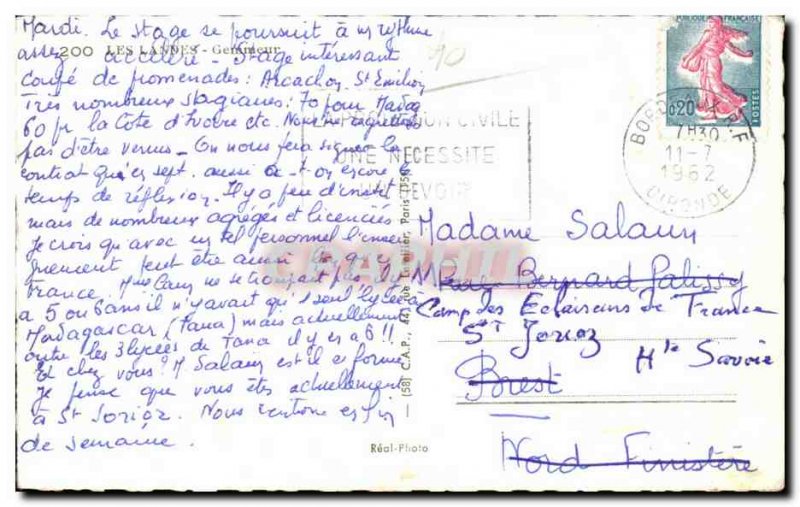 Mardi. Le stage se poursuit à un rythme
assez accéléré - Stage intéressant
200 LES LANDES - Gemmeur
coupé de promenades : Arcachon, St Emilion
Très nombreux stagiaires : 70 pour Madag
60 pr la Côte d'Ivoire etc. Nous ne regrettons
pas d'être venus - On nous fera signer le
contrat qu'en sept. aussi a-t-on encore le
temps de réflexion. Il y a peu d'instit
mais de nombreux agrégés et licenciés
Je crois qu'avec un tel personnel l'ensei
gnement peut être aussi bien que
France. ne se trompait pas
a 5 ou 6 ans il n'y avait qu'1 seul lycée à
Madagascar (Tana) mais actuellement
outre les 3 lycées de Tana il y en a 6 !!
Et chez vous ? M Salaun est il en forme
Je pense que vous êtes actuellement
à St Jorioz. Nous rentrons en fin
de semaine.
PROTECTION CIVILE
UNE NECESSITE
UN DEVOIR
REPUBLIQUE FRANÇAISE
0,20
POSTES
BORDEAUX R.P.
7H30
11-7
1962
GIRONDE
Madame Salaun
Rue Bernard Palissy
Camp des Eclaireurs de France
St Jorioz
Hte Savoie
Brest
Nord Finistère
(58) C.A.P., 44, rue Letellier, Paris (15e)
Réal-Photo